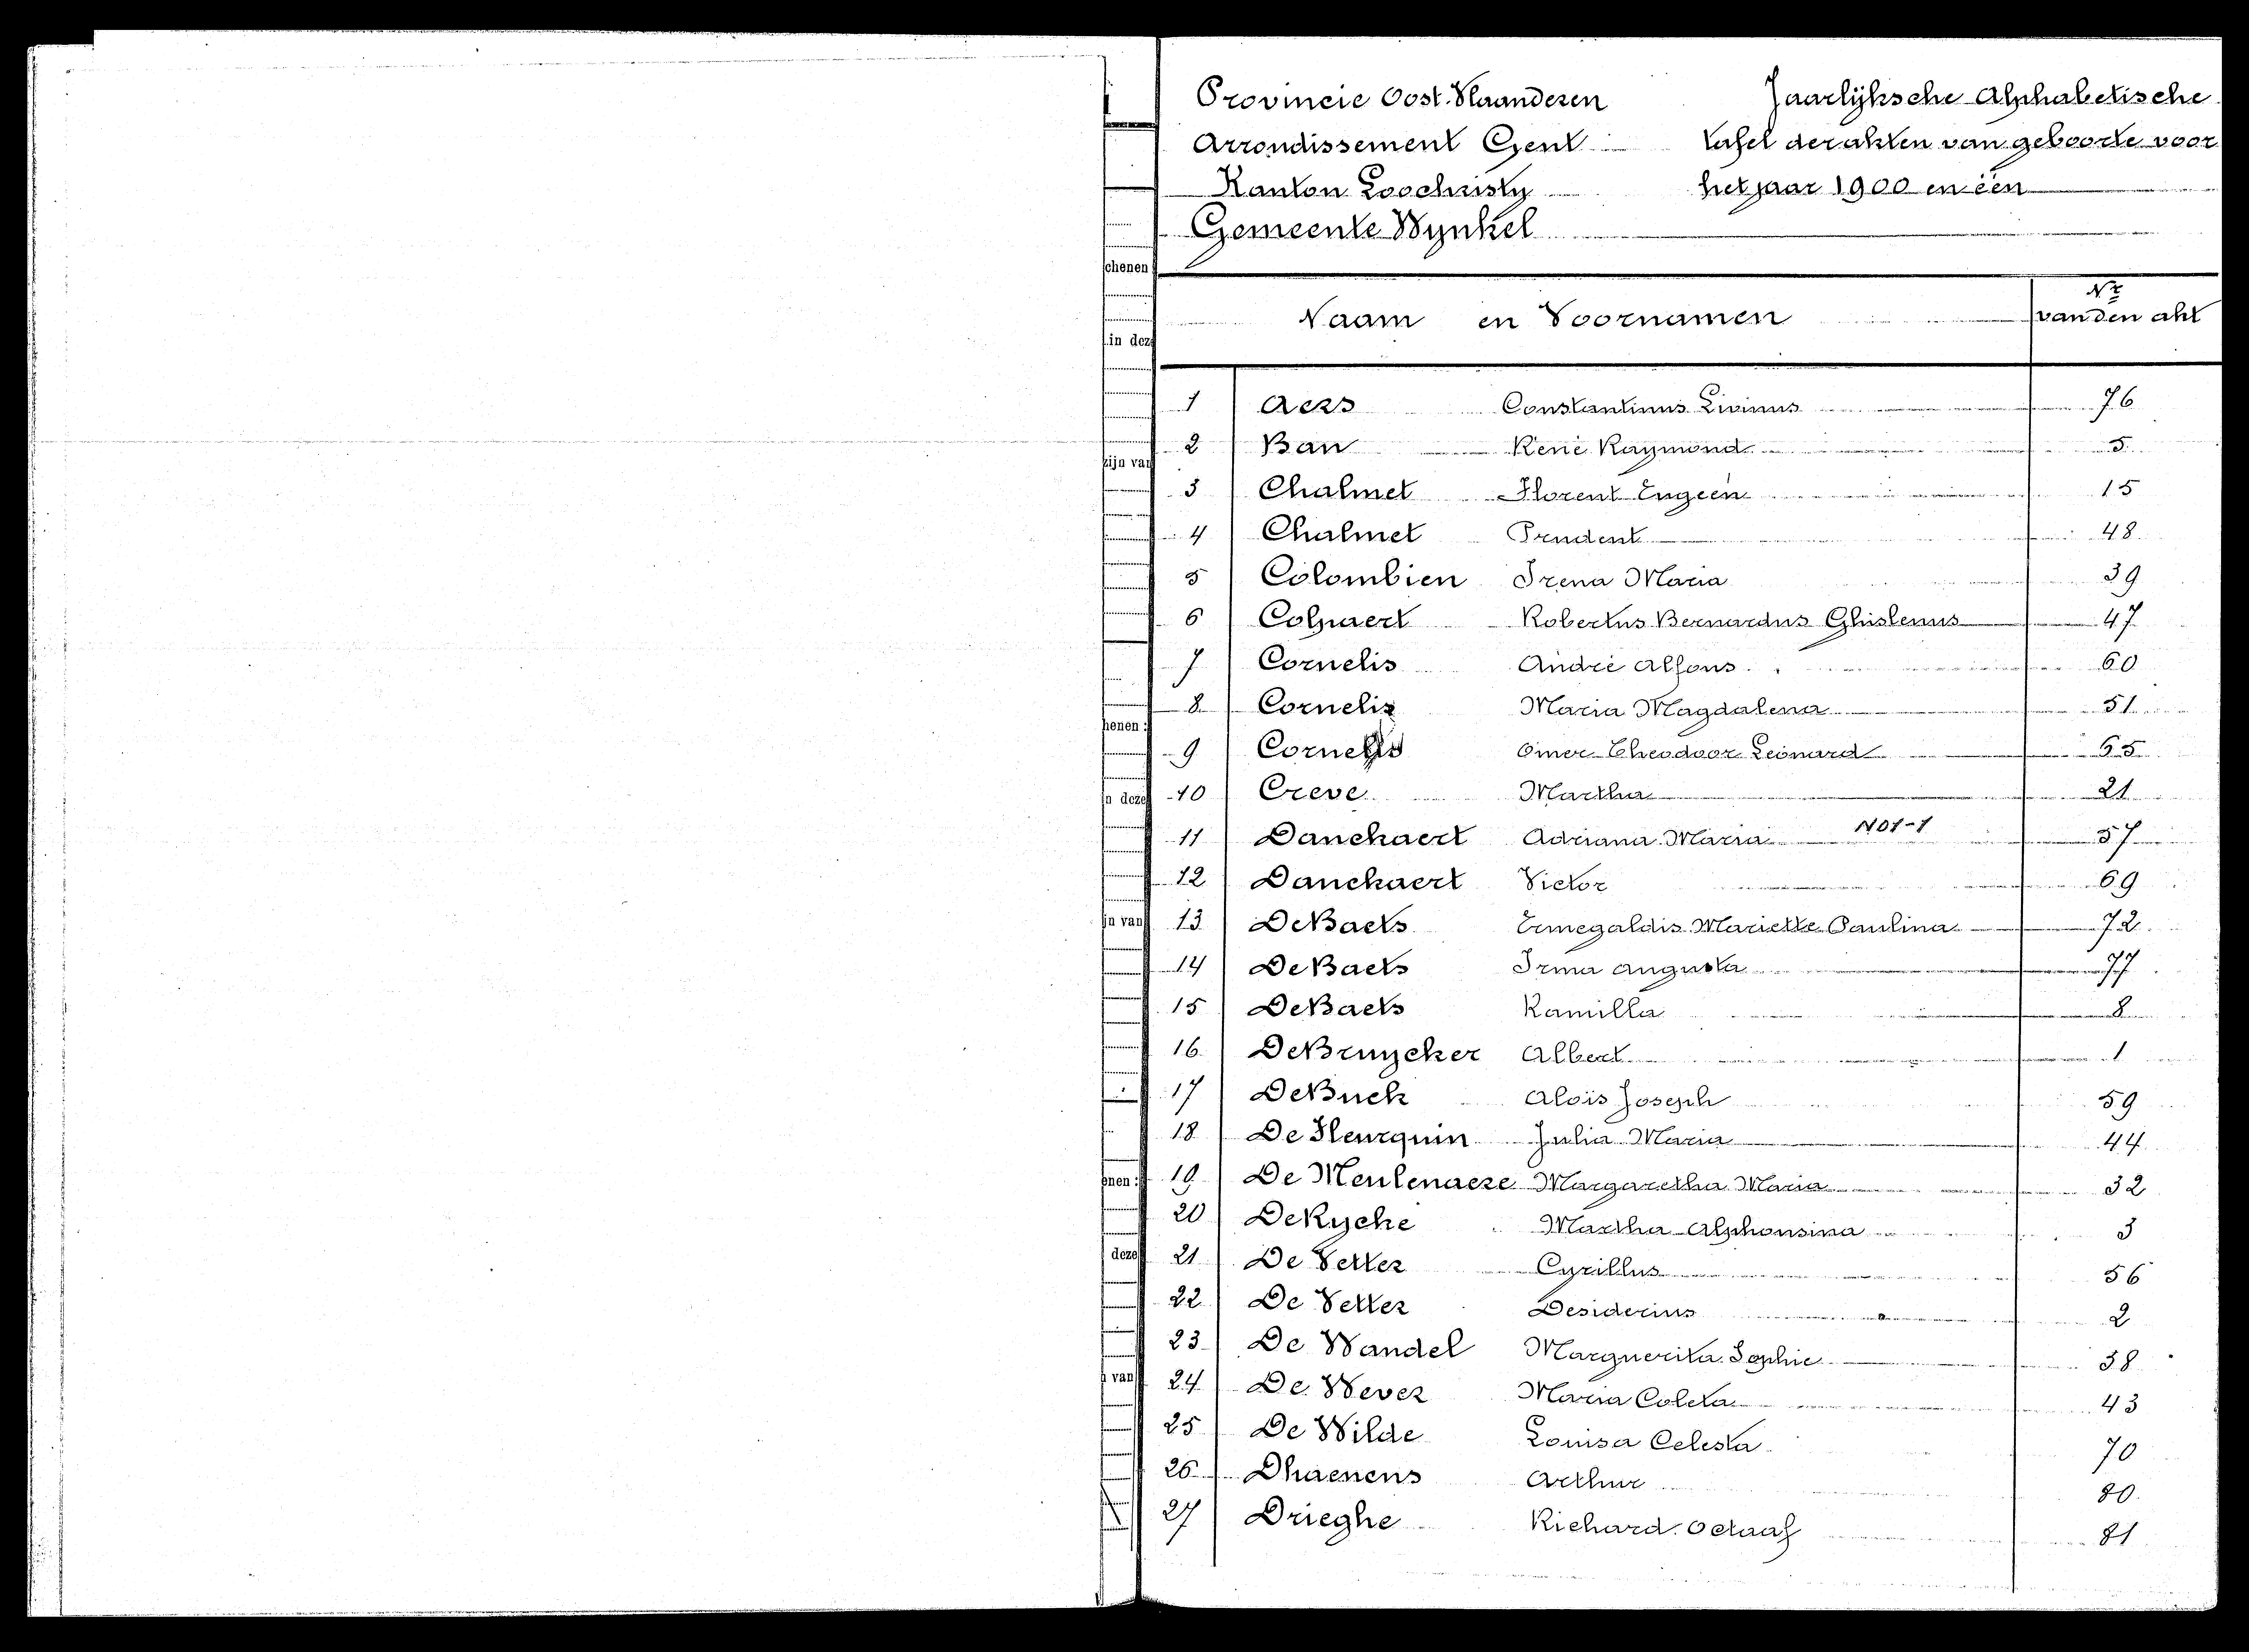 Provincie Oost-Vlaanderen
Arrondissement Gent
Kanton Loochristy
Gemeente Wynkel
Jaarlijksche Alphabetische
tafel der akten van geboorte voor
het jaar 1900 en één
Naam en Voornamen
Nr
van den akt
1 Aers Constantinus Livinus 76
2 Ban René Raymond 5
3 Chalmet Florent Eugeen 15
4 Chalmet Prudent 48
5 Colombien Irena Maria 39
6 Colpaert Robertus Bernardus Ghislenus 47
7 Cornelis André Alfons 60
8 Cornelis Maria Magdalena 51
9 Cornelis Omer Theodoor Leonard 65
10 Creve Martha 21
11 Danckaert Adriana Maria N01-1 57
12 Danckaert Victor 69
13 De Baets Ermegaldis Mariette Paulina 72
14 De Baets Irma Augusta 77
15 De Baets Kamilla 8
16 De Bruycker Albert 1
17 De Buck Alois Joseph 59
18 De Fleurquin Julia Maria 44
19 De Meulenaere Margaretha Maria 32
20 De Rycke Martha Alphonsina 3
21 De Vetter Cyrillus 56
22 De Vetter Desiderius 2
23 De Wandel Marguerita Sophie 38
24 De Wever Maria Coleta 43
25 De Wilde Louisa Celesta 70
26 Dhaenens Arthur 80
27 Drieghe Richard Octaaf 81
schenen
in deze
zijn van
henen :
in deze
jn van
enen :
deze
van